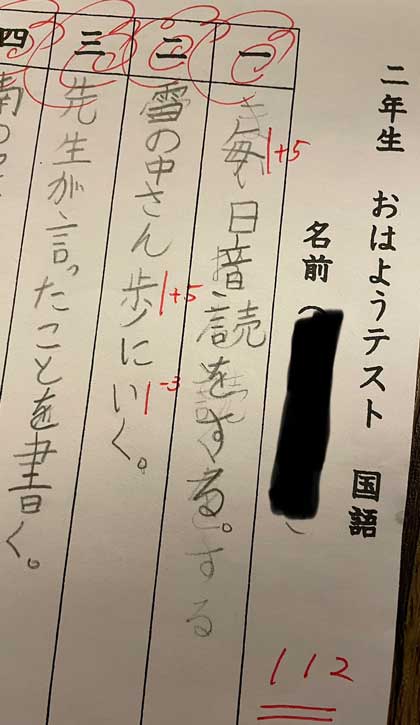 二年生 おはようテスト 国語
名前(　)
112
一
毎日音読をする。する
+5
二
雪の中さん歩にいく。
+5
-3
三
先生が言ったことを書く。
四
南の